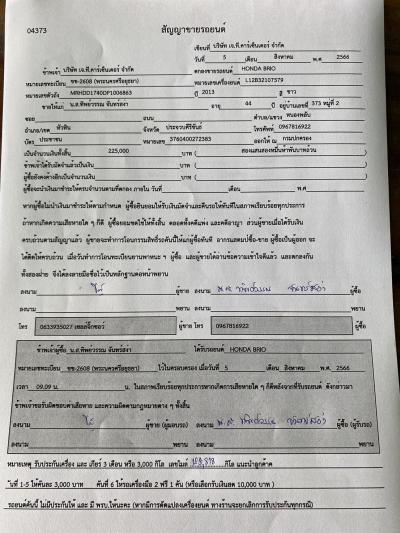 04373
สัญญาขายรถยนต์
เขียนที่ บริษัท เจ.ที.คาร์เซ็นเตอร์ จำกัด
วันที่ 5 เดือน สิงหาคม พ.ศ. 2566
ข้าพเจ้า บริษัท เจ.ที.คาร์เซ็นเตอร์ จำกัด ตกลงขายรถยนต์ HONDA BRIO
หมายเลขทะเบียน ขข-2608 (พระนครศรีอยุธยา) หมายเลขเครื่องยนต์ L12B32107579
หมายเลขตัวถัง MRHDD1740DP1006863 ปี 2013 สี ขาว
ขายให้แก่ น.ส.ทิพย์วรรณ จันทร์สง่า อายุ 44 ปี อยู่บ้านเลขที่ 373 หมู่ที่ 2
ซอย ถนน ตำบล/แขวง หนองพลับ
อำเภอ/เขต หัวหิน จังหวัด ประจวบคีรีขันธ์ โทรศัพท์ 0967816922
บัตร ประชาชน หมายเลข 3760400272383 ออกให้ ณ กรมปกครอง
เป็นจำนวนเงินทั้งสิ้น 225,000 บาท ( สองแสนสองหมื่นห้าพันบาทถ้วน )
ข้าพเจ้าได้รับมัดจำแล้วเป็นเงิน บาท ( )
ผู้ซื้อยังคงค้างอีกเป็นจำนวนเงิน บาท ( )
ผู้ซื้อจะนำเงินมาชำระให้ครบจำนวนตามที่ตกลง ภายใน วันที่ เดือน พ.ศ.
หากผู้ซื้อไม่นำเงินมาชำระตามกำหนด ผู้ซื้อยินยอมให้ริบเงินมัดจำและคืนรถให้ทันทีในสภาพเรียบร้อยทุกประการ
ถ้าหากเกิดความเสียหายใด ๆ ก็ดี ผู้ซื้อยอมชดใช้ให้ทั้งสิ้น ตลอดทั้งคดีแพ่ง และคดีอาญา ส่วนผู้ขายเมื่อได้รับเงิน
ครบถ้วนตามสัญญาแล้ว ผู้ขายจะทำการโอนกรรมสิทธิ์รถคันนี้ให้แก่ผู้ซื้อทันที อากรแสตมป์ซื้อ-ขาย ผู้ซื้อเป็นผู้ออก จะ
ได้คิดให้ครบถ้วน เมื่อวันทำการโอนทะเบียนยานพาหนะ ฯ ผู้ซื้อ และผู้ขายได้อ่านข้อความเข้าใจดีแล้ว และตกลงกัน
ทั้งสองฝ่าย จึงได้ลงลายมือชื่อไว้เป็นหลักฐานต่อหน้าพยาน
ลงนาม ผู้ขาย ลงนาม ผู้ซื้อ
ลงนาม พยาน ลงนาม พยาน
โทร 0633935027 ผู้ขาย โทร 0967816922 ผู้ซื้อ
ข้าพเจ้าผู้ซื้อ น.ส.ทิพย์วรรณ จันทร์สง่า ได้รับรถยนต์ HONDA BRIO
หมายเลขทะเบียน ขข-2608 (พระนครศรีอยุธยา) ไว้ในครอบครอง เมื่อวันที่ 5 เดือน สิงหาคม พ.ศ. 2566
เวลา 09.09 น. น. ในสภาพเรียบร้อยทุกประการหากเกิดการเสียหายใด ๆ ก็ดีหลังจากที่รับรถยนต์ ดังกล่าวมา
ข้าพเจ้าขอรับผิดชอบค่าเสียหาย และความผิดตามกฎหมายต่าง ๆ ทั้งสิ้น
ลงนาม ผู้ขาย (ผู้มอบรถ) ลงนาม ผู้ซื้อ (ผู้รับรถ)
ลงนาม พยาน ลงนาม พยาน
หมายเหตุ รับประกันเครื่อง และ เกียร์ 3 เดือน หรือ 3,000 กิโล เลขไมล์ กิโล แนะนำลูกค้าค
ันที่ 1-5 ให้คันละ 3,000 บาท คันที่ 6 ให้รถเครื่องมือ 2 ฟรี 1 คัน (หรือเลือกรับเงินสด 10,000 บาท )
รถยนต์คันนี้ ไม่มีประกันให้ และ มี พรบ.ให้นะค่ะ (หากมีการดัดแปลงเครื่องยนต์ ทางร้านจะยกเลิกการรับประกันทุกกรณี)